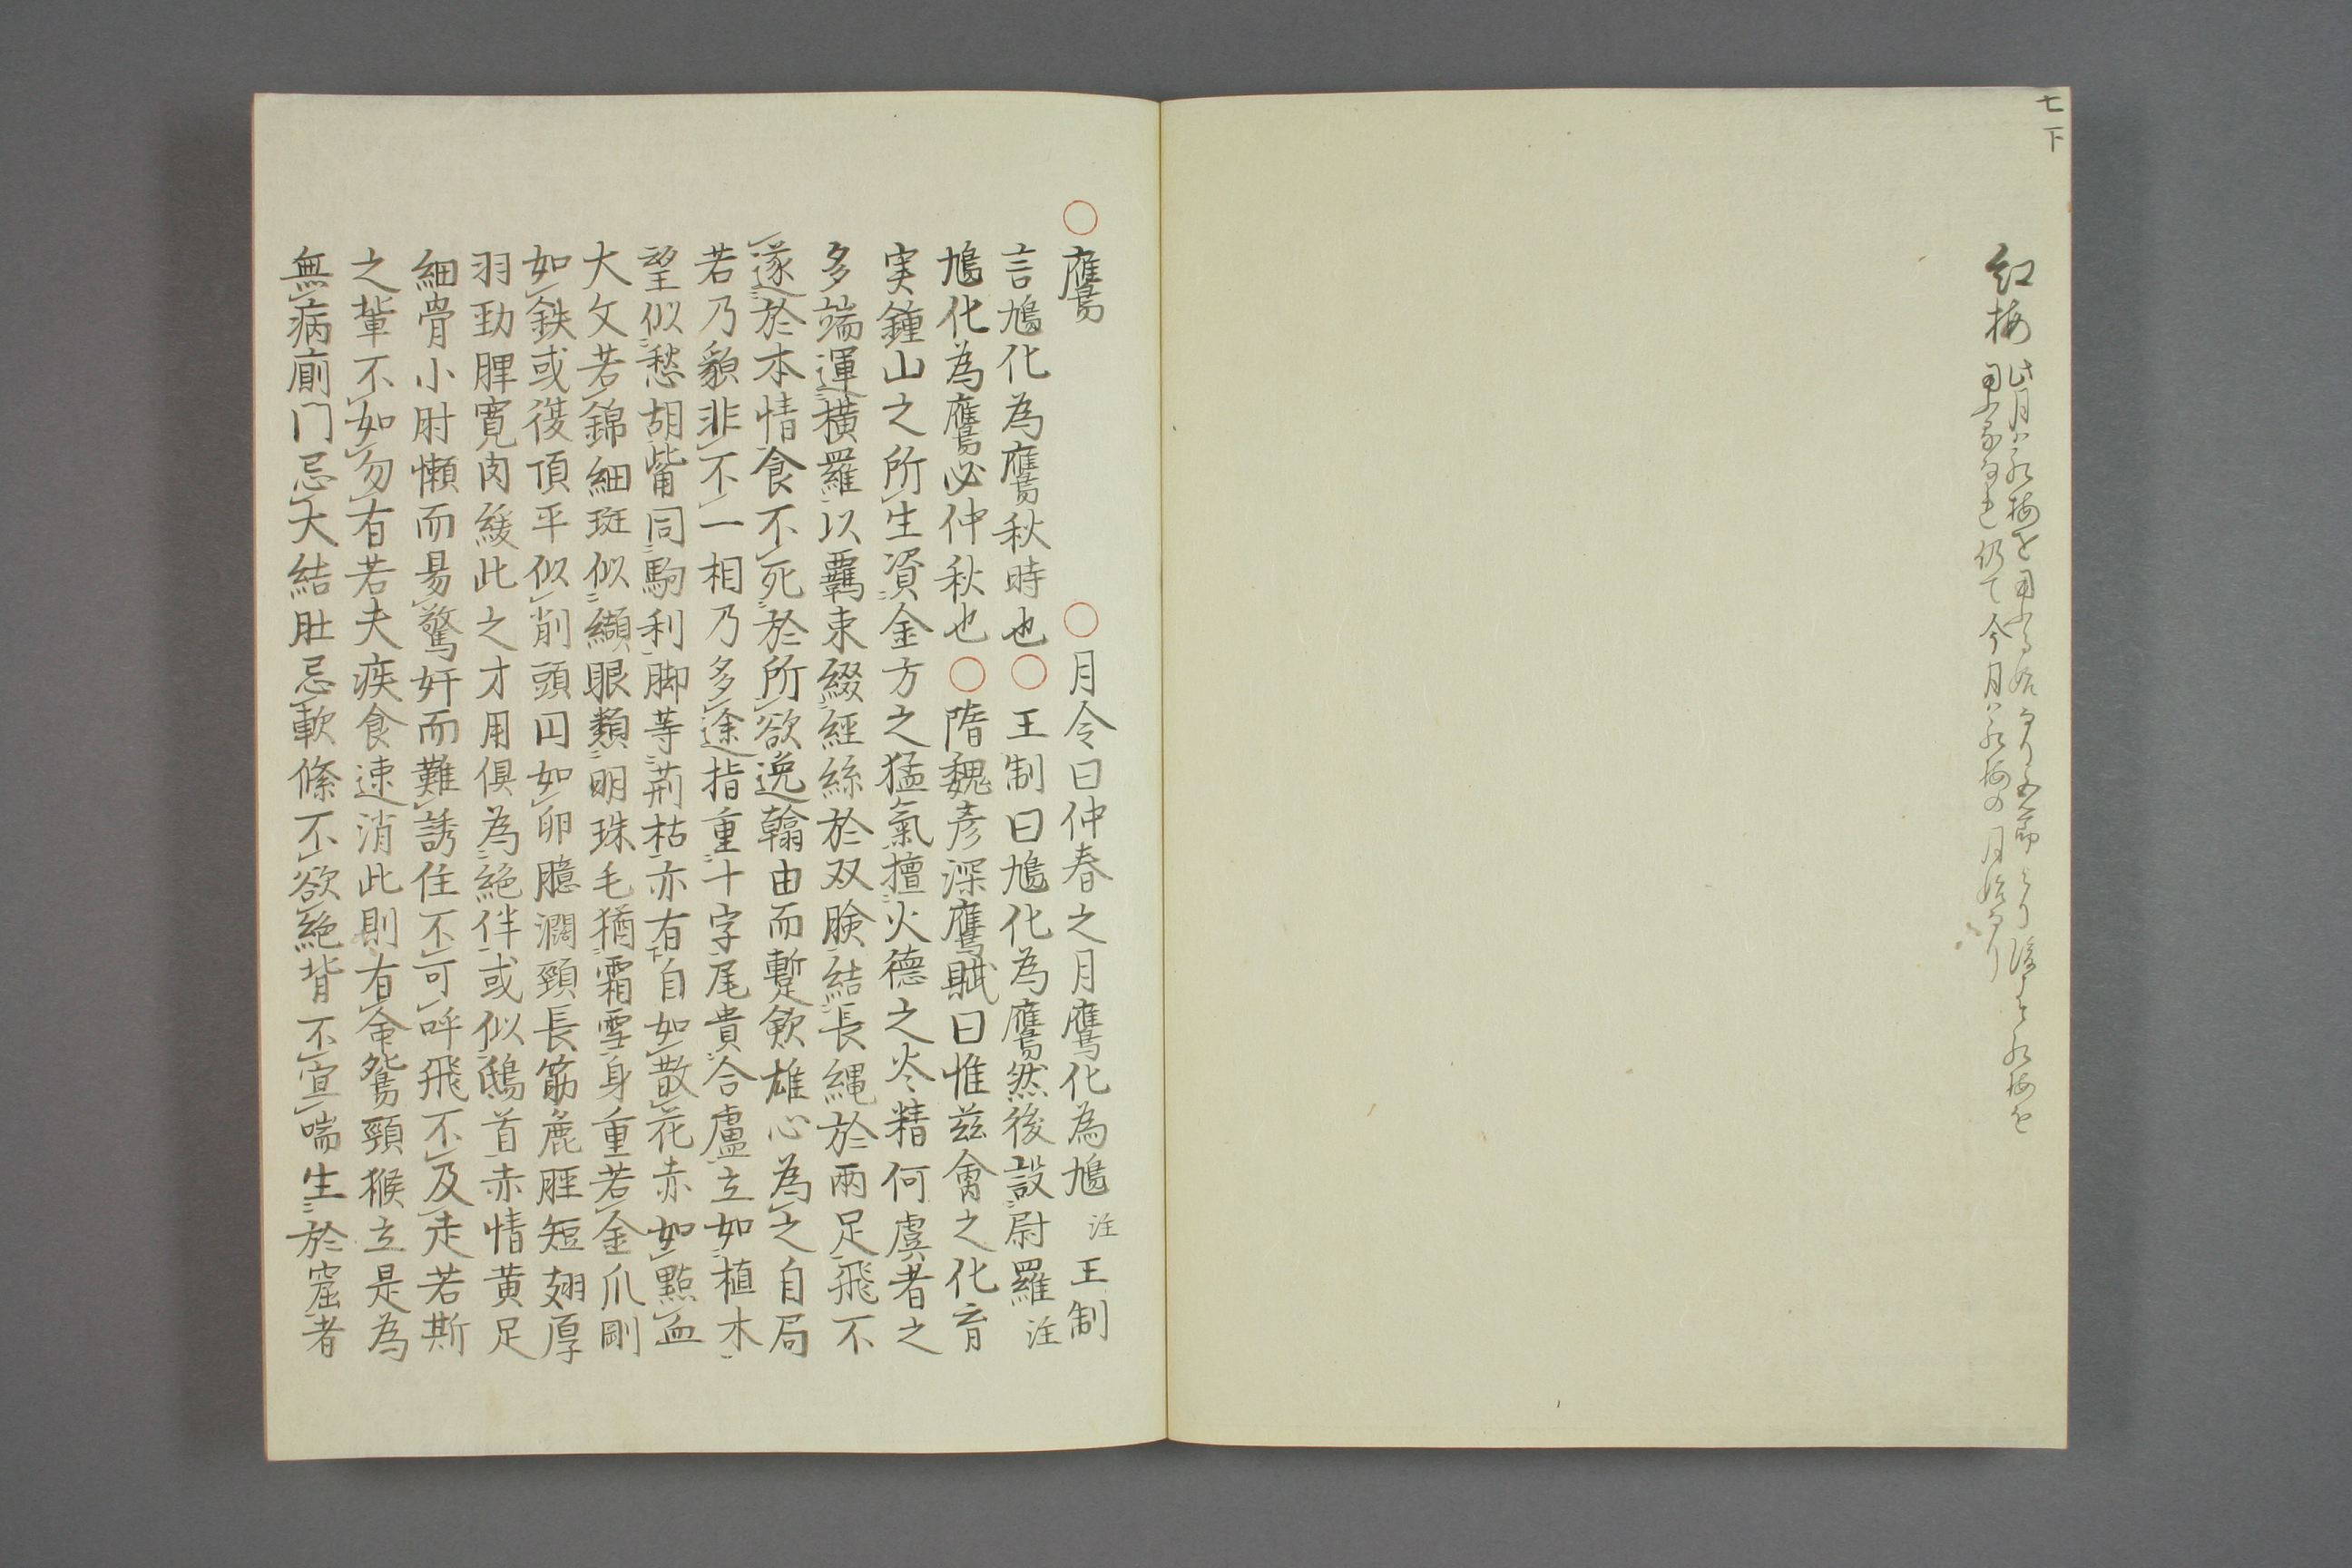 七下
紅梅
此月ハ紅梅を用ふる始なり五節より後は紅梅を
用る事なれ仍て今月ハ紅梅の月始なり
○鷹　○月令曰仲春之月鷹化為鳩 注 王制
言鳩化為鷹秋時也○王制曰鳩化為鷹然後設尉羅 注
鳩化為鷹必仲秋也○隋魏彦深鷹賦曰惟茲禽之化育
実鍾山之所生資金方之猛氣擅火德之炎精何虞者之
多端運横羅以羈束綴軽絲於双瞼結長縄於兩足飛不
遂於本情食不死於所欲逸翰由而蹔歛雄心為之自局
若乃貌非不一相乃多途指重十字尾貴合盧立如植木
望似愁胡觜同駒利脚等荊枯亦有自如散花赤如點血
大文若錦細斑似纈眼類明珠毛猶霜雪身重若金爪剛
如鉄或復頂平似削頭円如卵臆濶頸長筋麁脛短翅厚
羽勁髀寛肉緩此之才用倶為絶伴或似鴟首赤情黄足
細骨小肘懶而易驚奸而難誘住不可呼飛不及走若斯
之輩不如勿有若夫疾食速消此則有命鴛頸猴立是為
無病廁门忌大結肚忌軟條不欲絶背不宣喘生於窟者